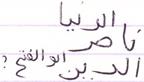 الدنيا
ناصر
الدين ابو الفتح ؟